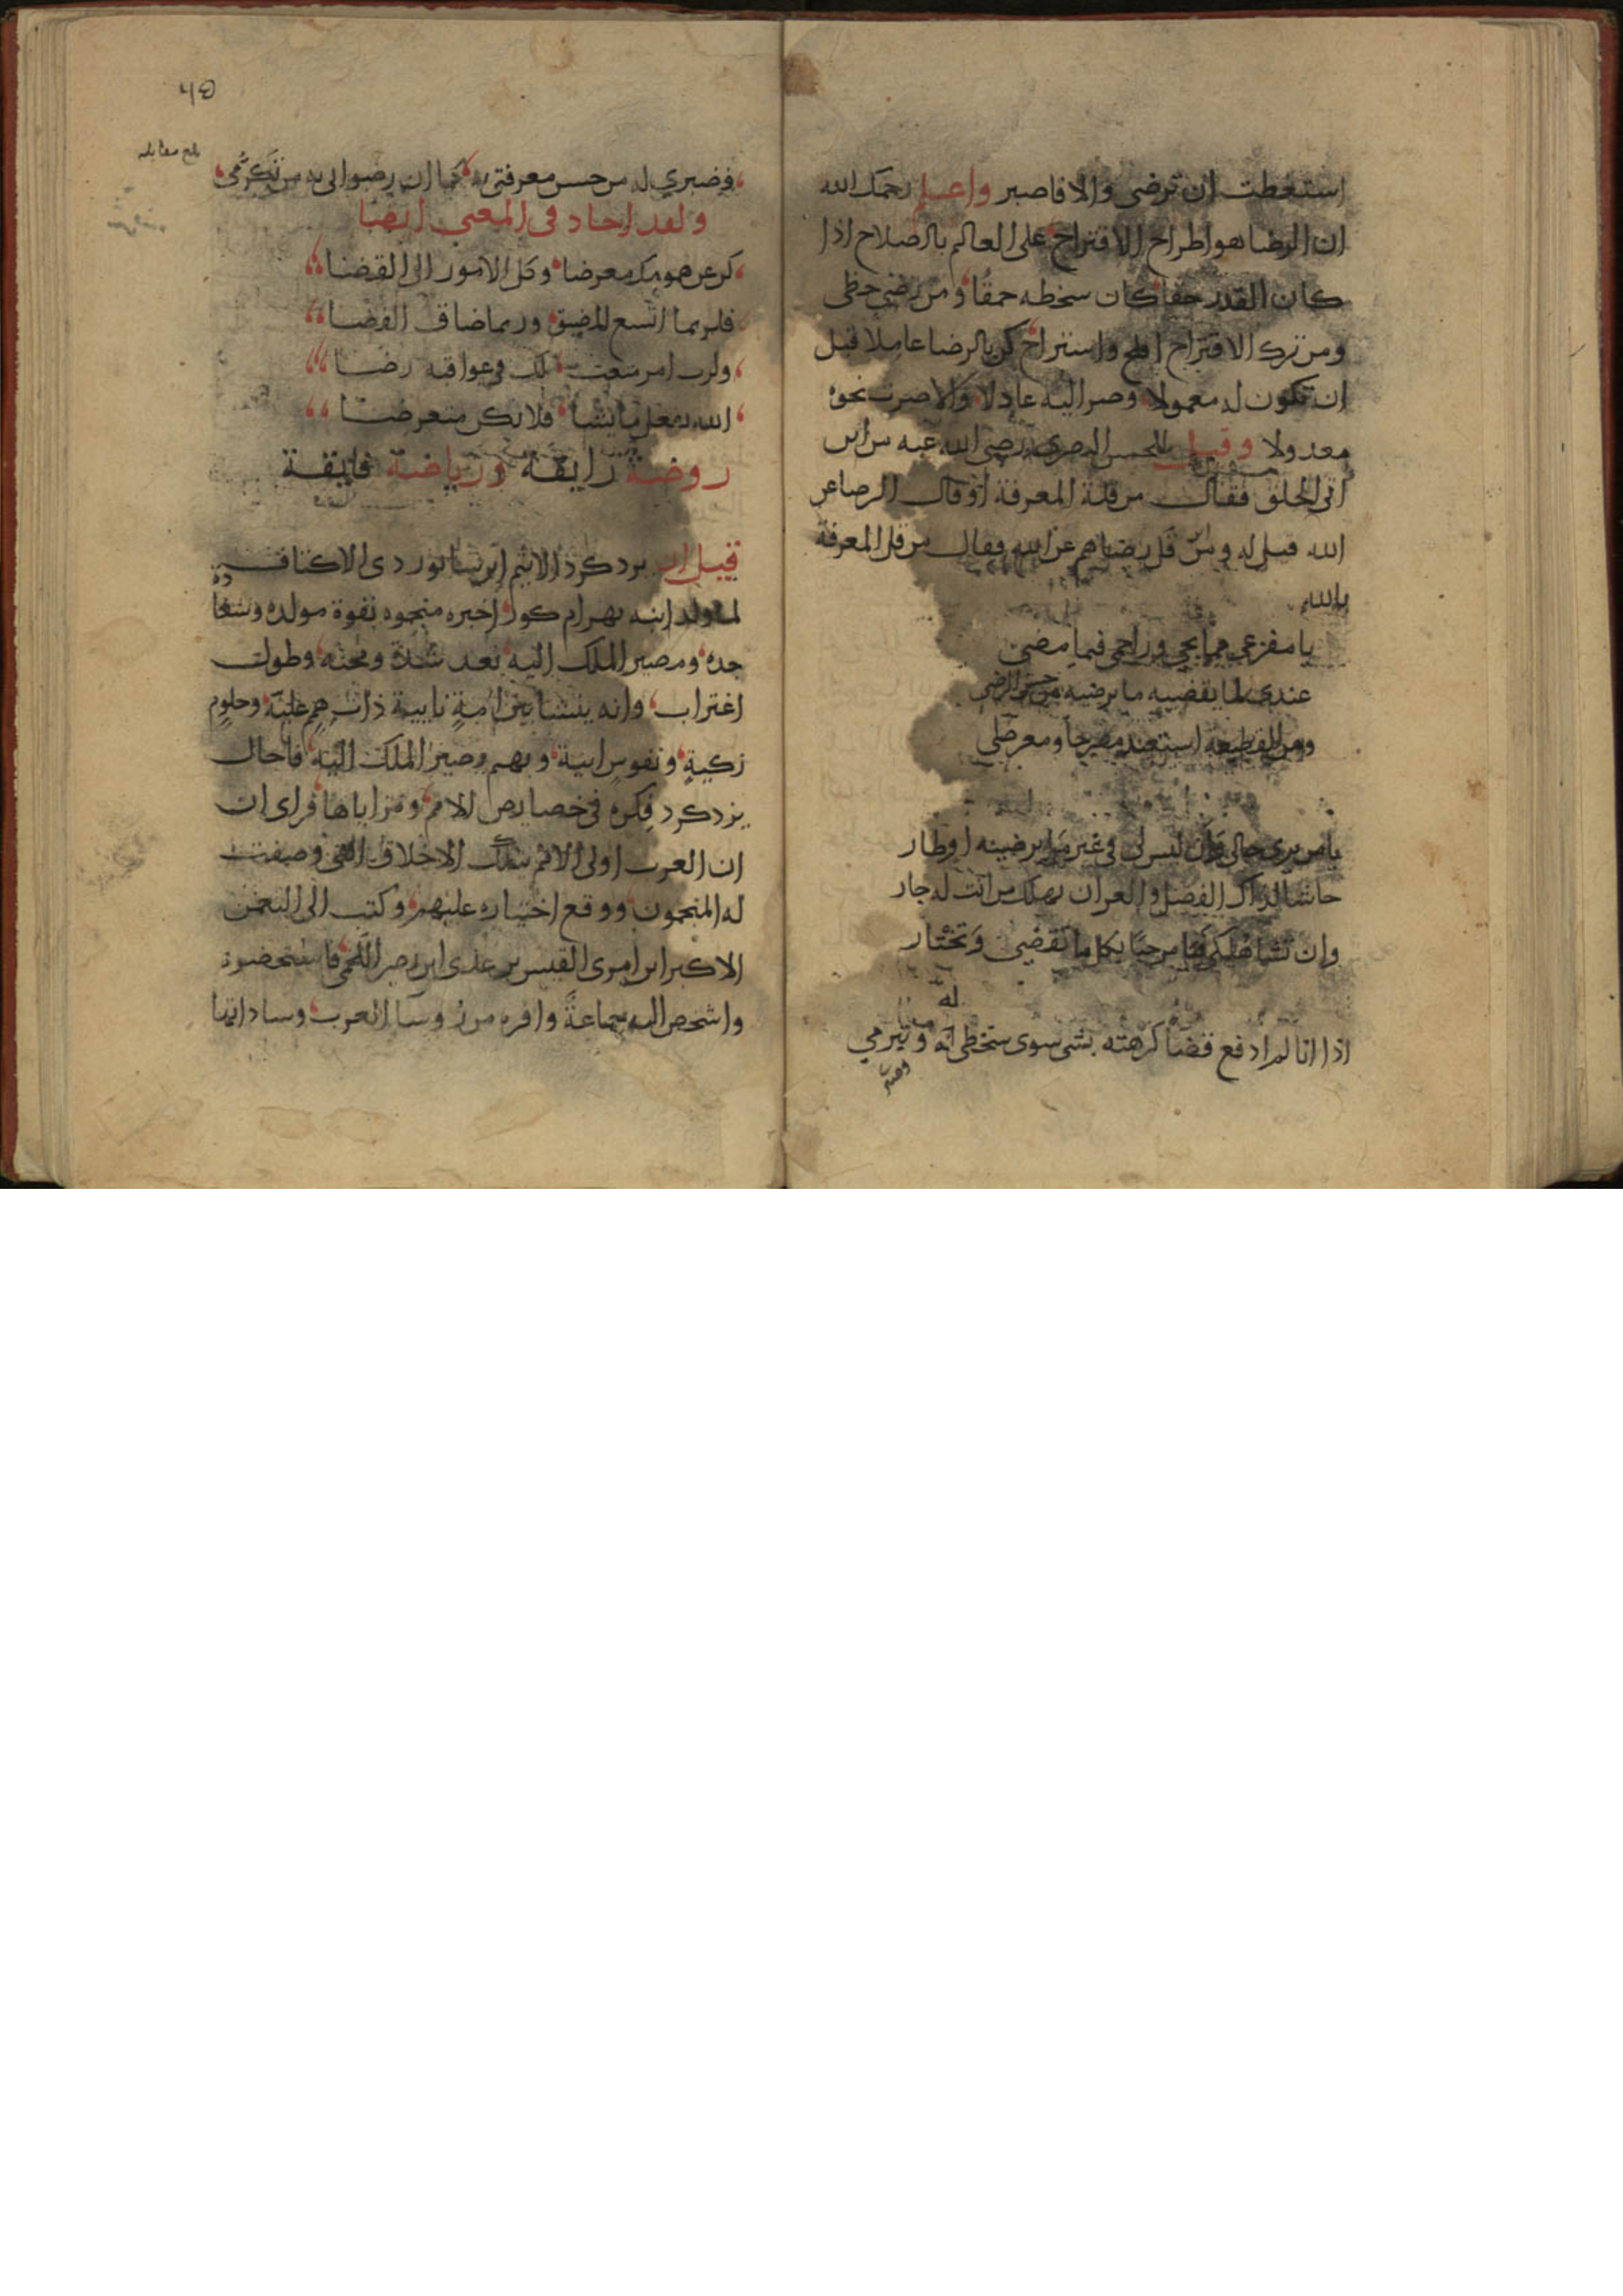 استطعت ان ترضى والا فاصبر واعلم رحمك الله
ان الرضا هو اطراح الاقتراح على العالم بالصلاح اذا
كان القدر حقا كان سخطه حمقا ومن رضي حظى
ومن ترك الاقتراح افلح واستراح كن بالرضا عاملا قبل
ان تكون له معمولا وصر اليه عادلا والا صرت نحوه
معدولا وقيل للحسن البصرى رضى الله عنه من اين
اتى الخلق فقال من قلة المعرفة او قال الرضا عن
الله فقيل له ومن اين قل رضاهم عن الله فقال من قلة المعرفة
بالله
يا مفزعى فيما يجي وراحمى فيما مضى
عندى لما يقضيه ما يرضيه من حسن الرضى
ومن القطيعة استعيذ مصرحا ومعرضا
يا من يرى حالى وان ليس لى فى غير ما يرضيه اوطار
حاشا لذاك الفضل والعز ان يهلك من انت له جار
وان تشا هلكى فيا مرحبا بكل ما تقضى وتختار
له
اذا انا لم ادفع قضا كرهته بشى سوى سخطى له وتبرمي
وصبر
٤٥
بلغ مقابله
فصبري له من حسن معرفتى به كما ان رضوانى به من تكرمى
ولقد اجاد فى المعنى ايضا
كن عن همومك معرضا وكل الامور الى القضا
فلربما اتسع المضيق وربما ضاق الفضا
ولرب امر متعب لك فى عواقبه رضا
الله يفعل ما يشا فلا تكن متعرضا
روضة رايقة ورياضة فايقة
قيل ان يزدكرد الاثيم ابن سابور ذى الاكتاف
لما ولد ابنه بهرام كور اخبره منجموه بقوة مولده وسعادة
جده ومصير الملك اليه بعد شدة ومحنه وطول
اغتراب وانه ينشا بين امة نايية ذات همم علية وحلوم
زكية ونفوس ابية وبهم يصير الملك اليه فاجال
يزدكرد فكره فى خصايص الامم ومزاياها فراى ان
ان العرب اولى الامم بتلك الاخلاق التى وصفت
له المنجمون ووقع اختياره عليهم وكتب الى النعمن
الاكبر ابن امرى القيس بن عدى ابن نصر اللخمى فاستحضره
واشخص اليه جماعة وافره من روسا العرب وساداتها